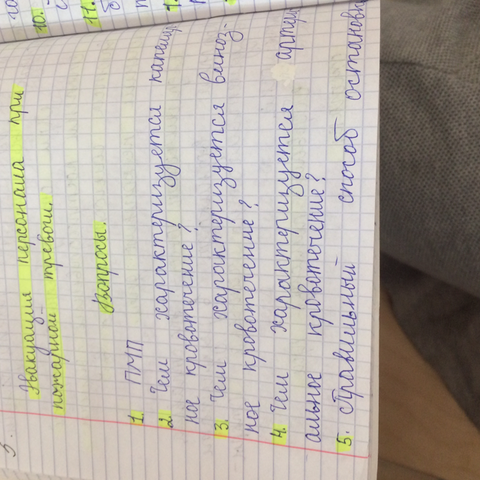 Эвакуация персонала при
пожарной тревоги.
Вопросы.
1. ПМП
2. Чем характеризуется капилл
ное кровотечение?
3. Чем характеризуется виноз-
ное кровотечение?
4. Чем характеризуется артери
альное кровотечение?
5. Правильный способ остановк
10.
11.